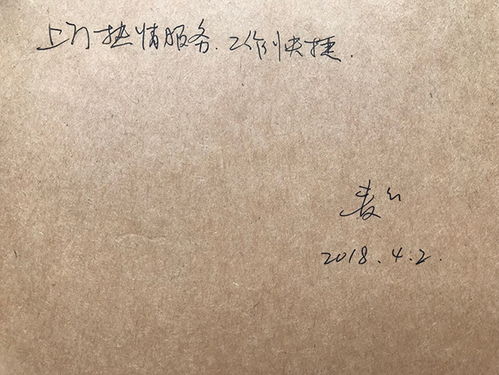 上门热情服务.工作快捷.
2018.4.2.